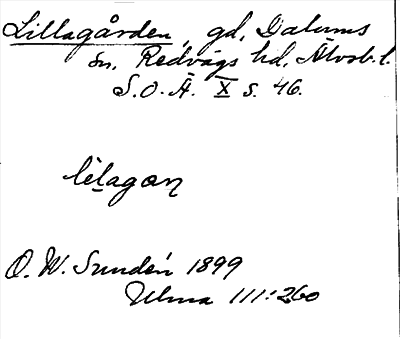 Lillagården, gd, Dalums
sn, Redvägs hd, Älvsb. l.
S.O.Ä. X s. 46.
lilagaɳ
O. W. Sundén 1899
Ulma 111:260